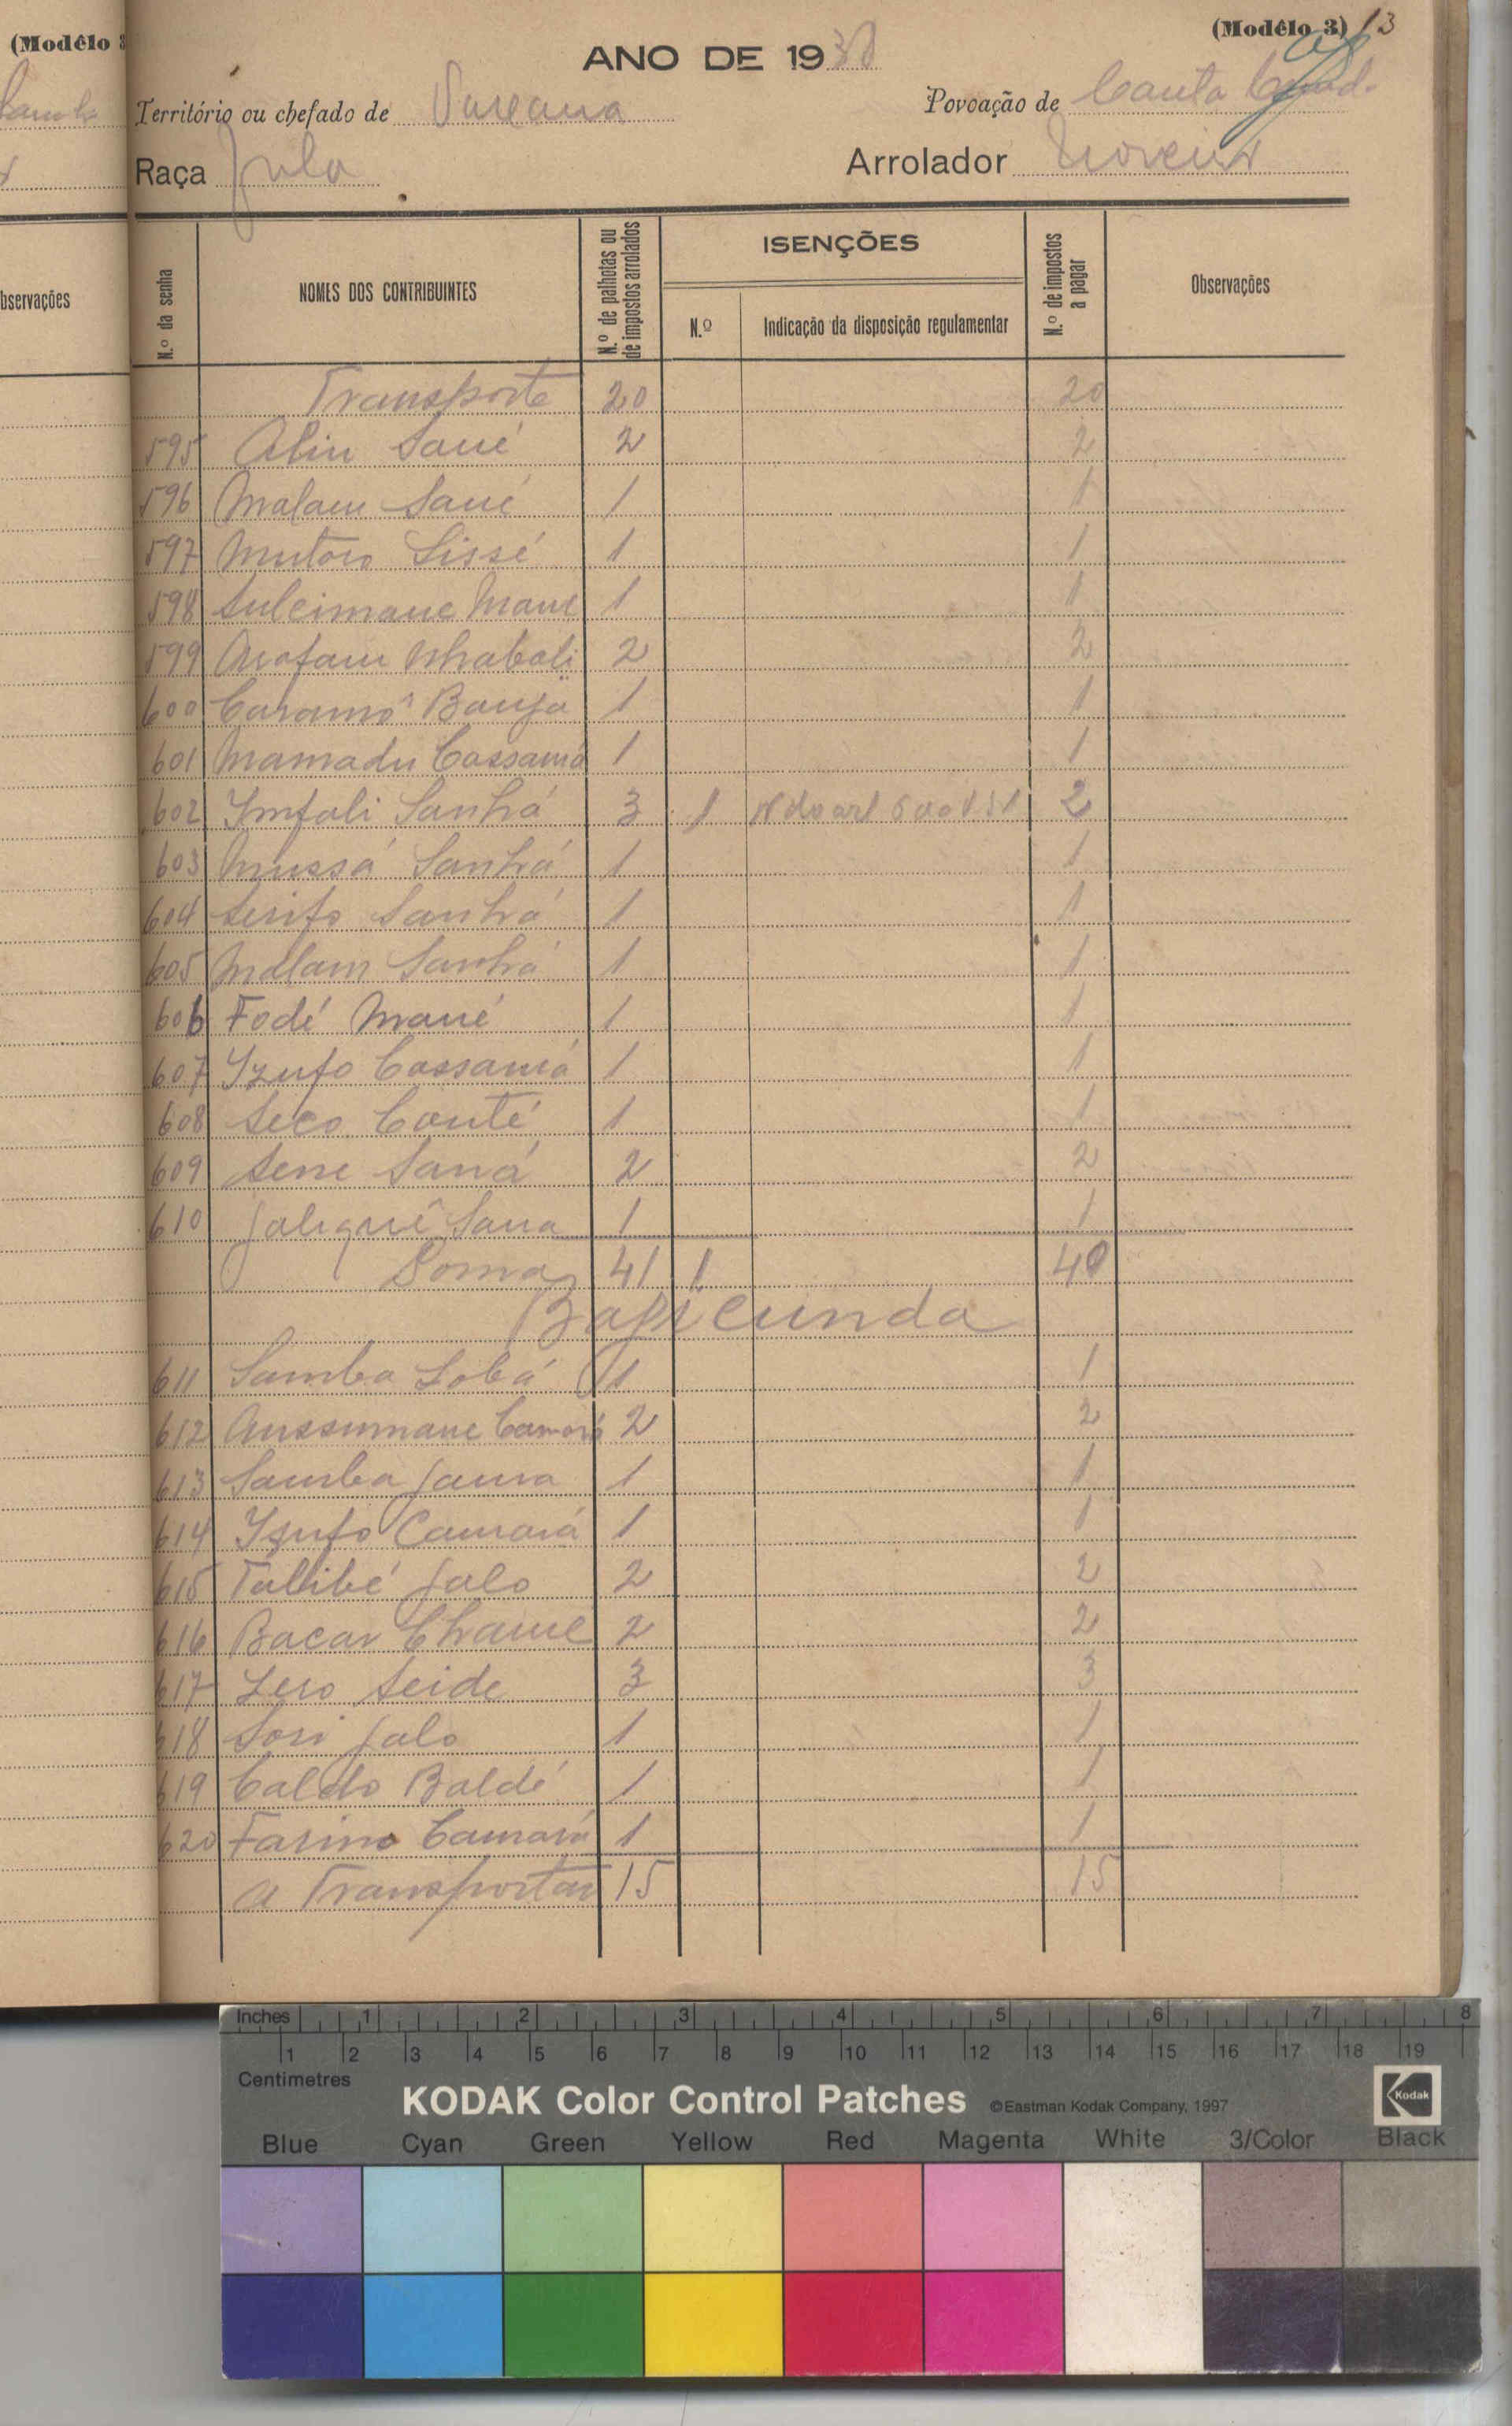 (Modêlo
(Modêlo 3) 13
ANO DE 1938
Território ou chefado de
Povoação de Canta
Raça Fula
Arrolador Moreira
Observações
N.º da senha
NOMES DOS CONTRIBUINTES
N.º de palhotas ou de impostos arrolados
ISENÇÕES
N.º
Indicação da disposição regulamentar
N.º de impostos a pagar
Observações
Transporte 20 20
595 Aliu Sané 2 2
596 Malam Sané 1 1
597 Mutoro Sissé 1 1
598 Suleimane Mané 1 1
599 Arafam 2 2
600 Caramô Banja 1 1
601 Mamadu Cassamá 1 1
602 Ymfali Sanhá 3 1 do art 2
603 Mussá Sanhá 1 1
604 Serifo Sanhá 1 1
605 Malam Sanhá 1 1
606 Fodé Mané 1 1
607 Yzufo Cassamá 1 1
608 Seco Conté 1 1
609 Sene Saná 2 2
610 Saná 1 1
Soma 41 1 40
Bapicunda
611 Samba Lobá 1 1
612 Aussumane Camará 2 2
613 Samba Jaura 1 1
614 Yzufo Camará 1 1
615 Tallibé Jalo 2 2
616 Bacar Chamé 2 2
617 Lero Seide 3 3
618 Sori Jalo 1 1
619 Caldo Baldé 1 1
620 Farino Camará 1 1
A Transportar 15 15
Inches 1 2 3 4 5 6 7 8
1 2 3 4 5 6 7 8 9 10 11 12 13 14 15 16 17 18 19
Centimetres
KODAK Color Control Patches ©Eastman Kodak Company, 1997 Kodak
Blue Cyan Green Yellow Red Magenta White 3/Color Black